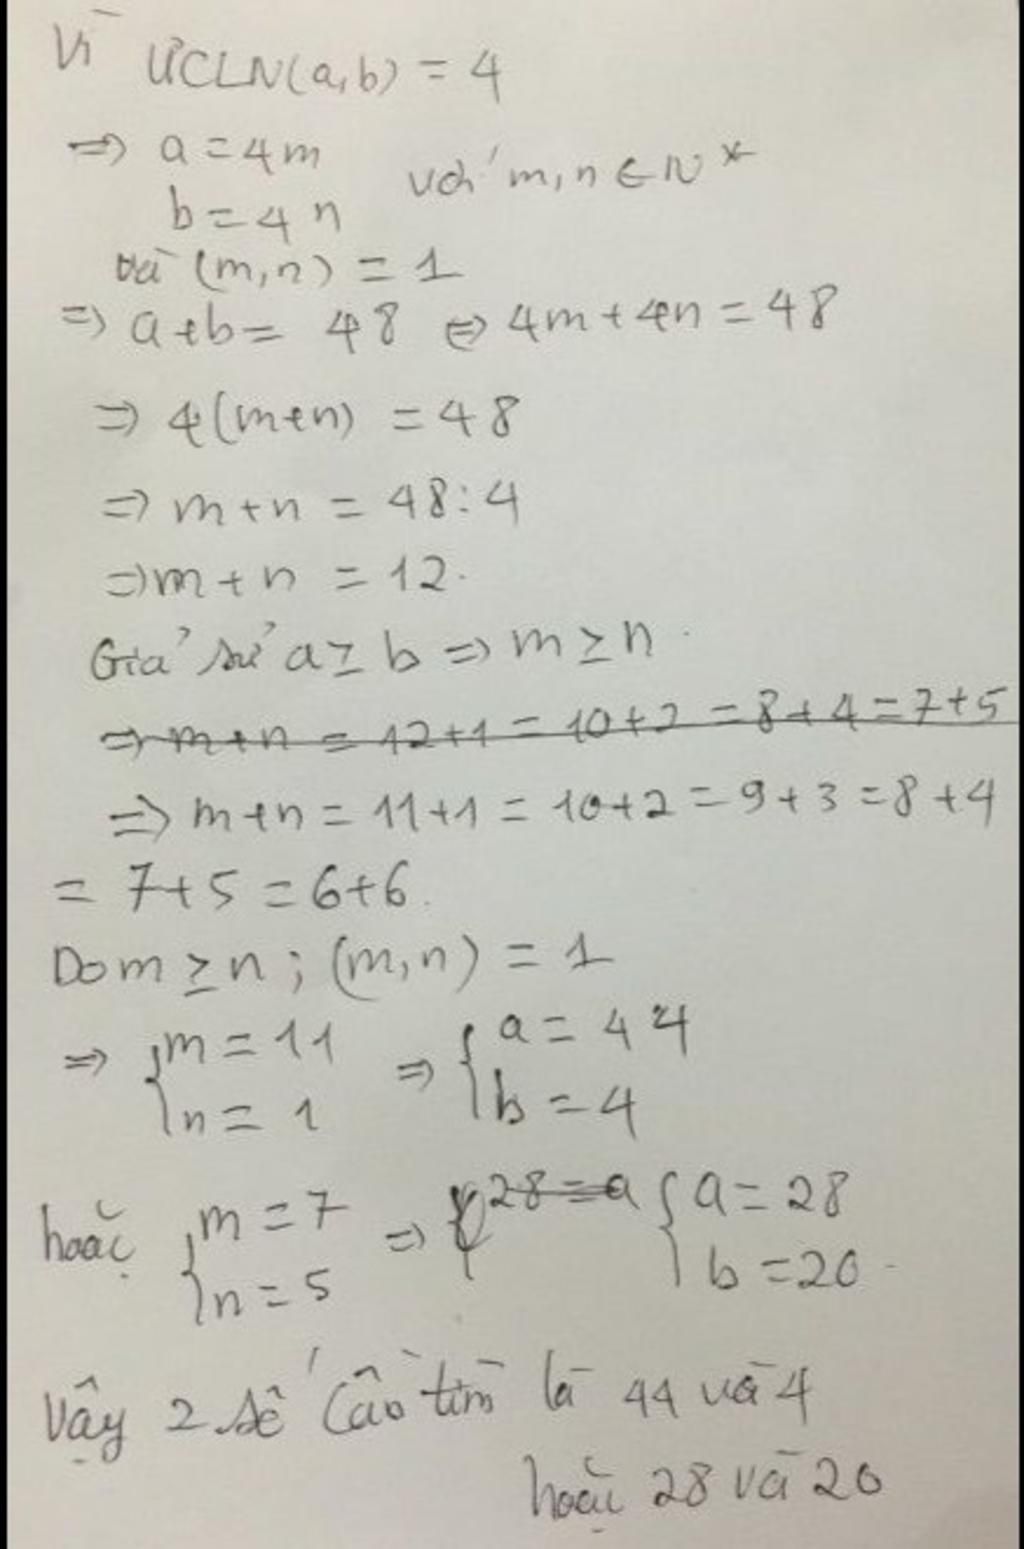 Vì ƯCLN(a,b) = 4
=> a = 4m
với m,n ∈ N*
b = 4n
và (m,n) = 1
=> a+b = 48 <=> 4m + 4n = 48
=> 4(m+n) = 48
=> m+n = 48:4
=> m+n = 12.
Giả sử a ≥ b => m ≥ n.
=> m+n = 12+1 = 10+2 = 8+4 = 7+5
=> m+n = 11+1 = 10+2 = 9+3 = 8+4
= 7+5 = 6+6.
Do m ≥ n ; (m,n) = 1
=> { m = 11 => { a = 44
n = 1 b = 4
hoặc { m = 7 => { 28 = a { a = 28
n = 5 b = 20
Vậy 2 số cần tìm là 44 và 4
hoặc 28 và 20